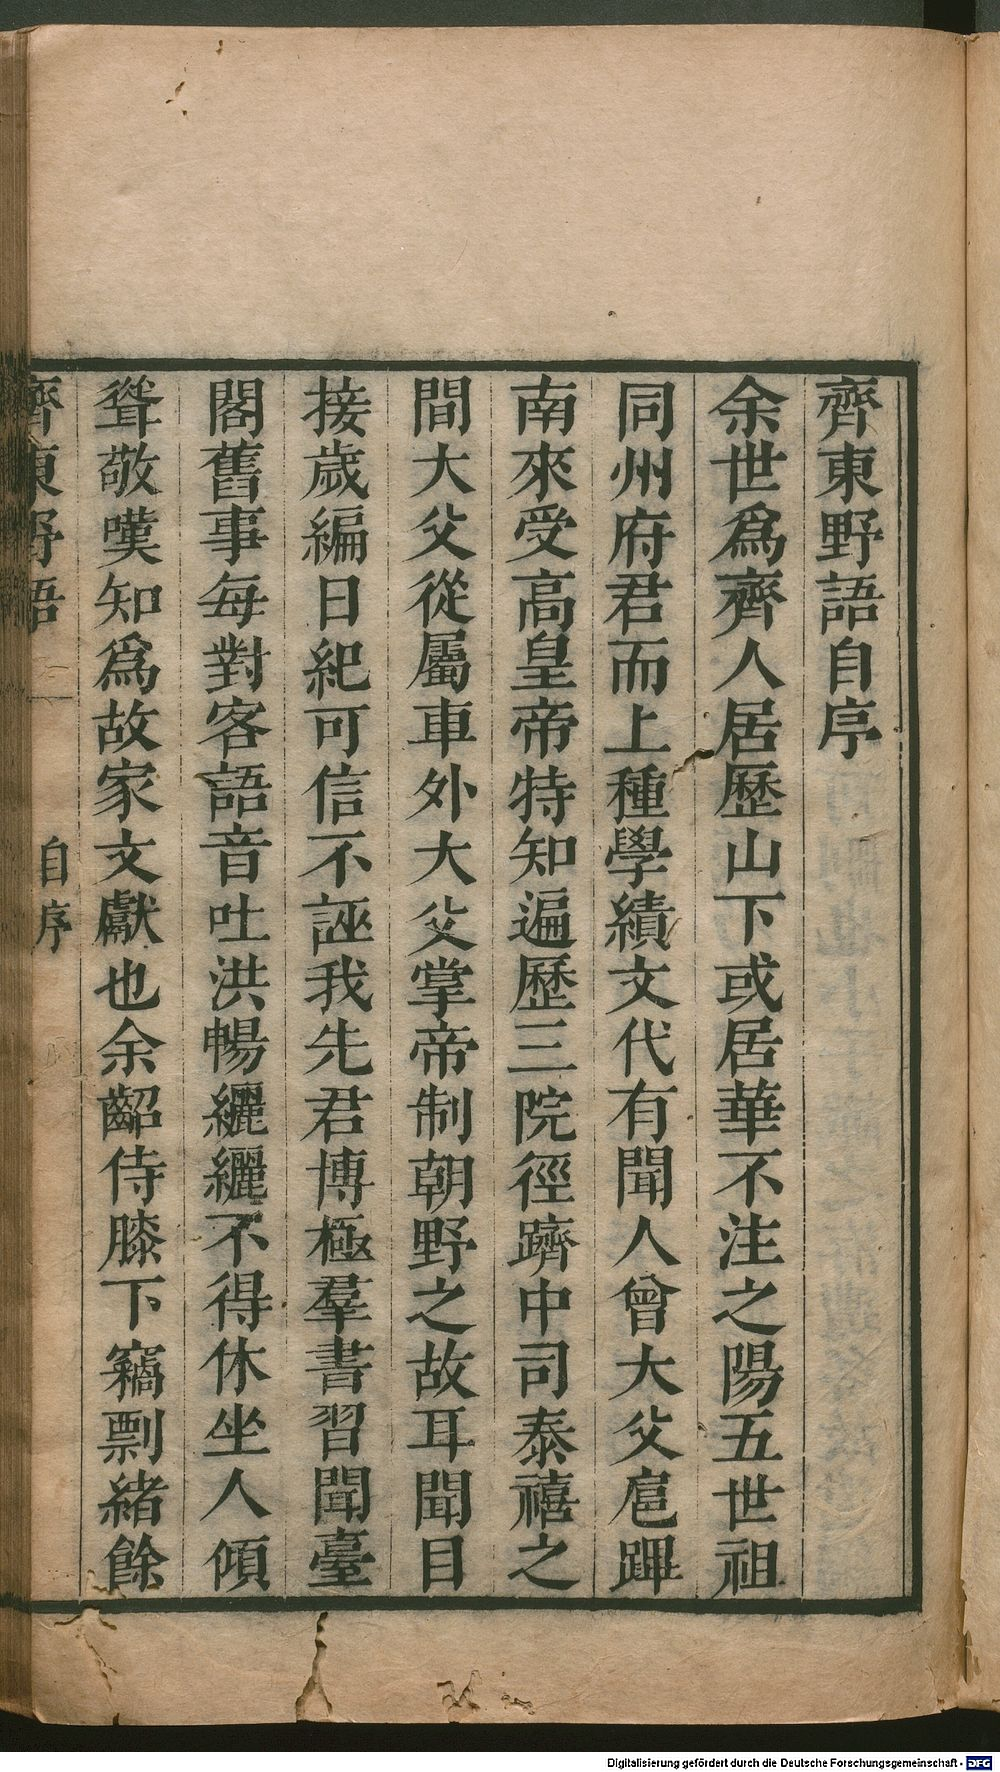 齊東野語自序
余世爲齊人居歷山下或居華不注之陽五世祖
同州府君而上種學績文代有聞人曾大父扈蹕
南來受高皇帝特知遍歷三院徑躋中司泰禧之
間大父從屬車外大父掌帝制朝野之故耳聞目
接歲編日紀可信不誣我先君博極羣書習聞臺
閣舊事每對客語音吐洪暢纚纚不得休坐人傾
聳敬嘆知爲故家文獻也余齠侍膝下竊剽緒餘
齊東野語 自序
Digitalisierung gefördert durch die Deutsche Forschungsgemeinschaft - DFG